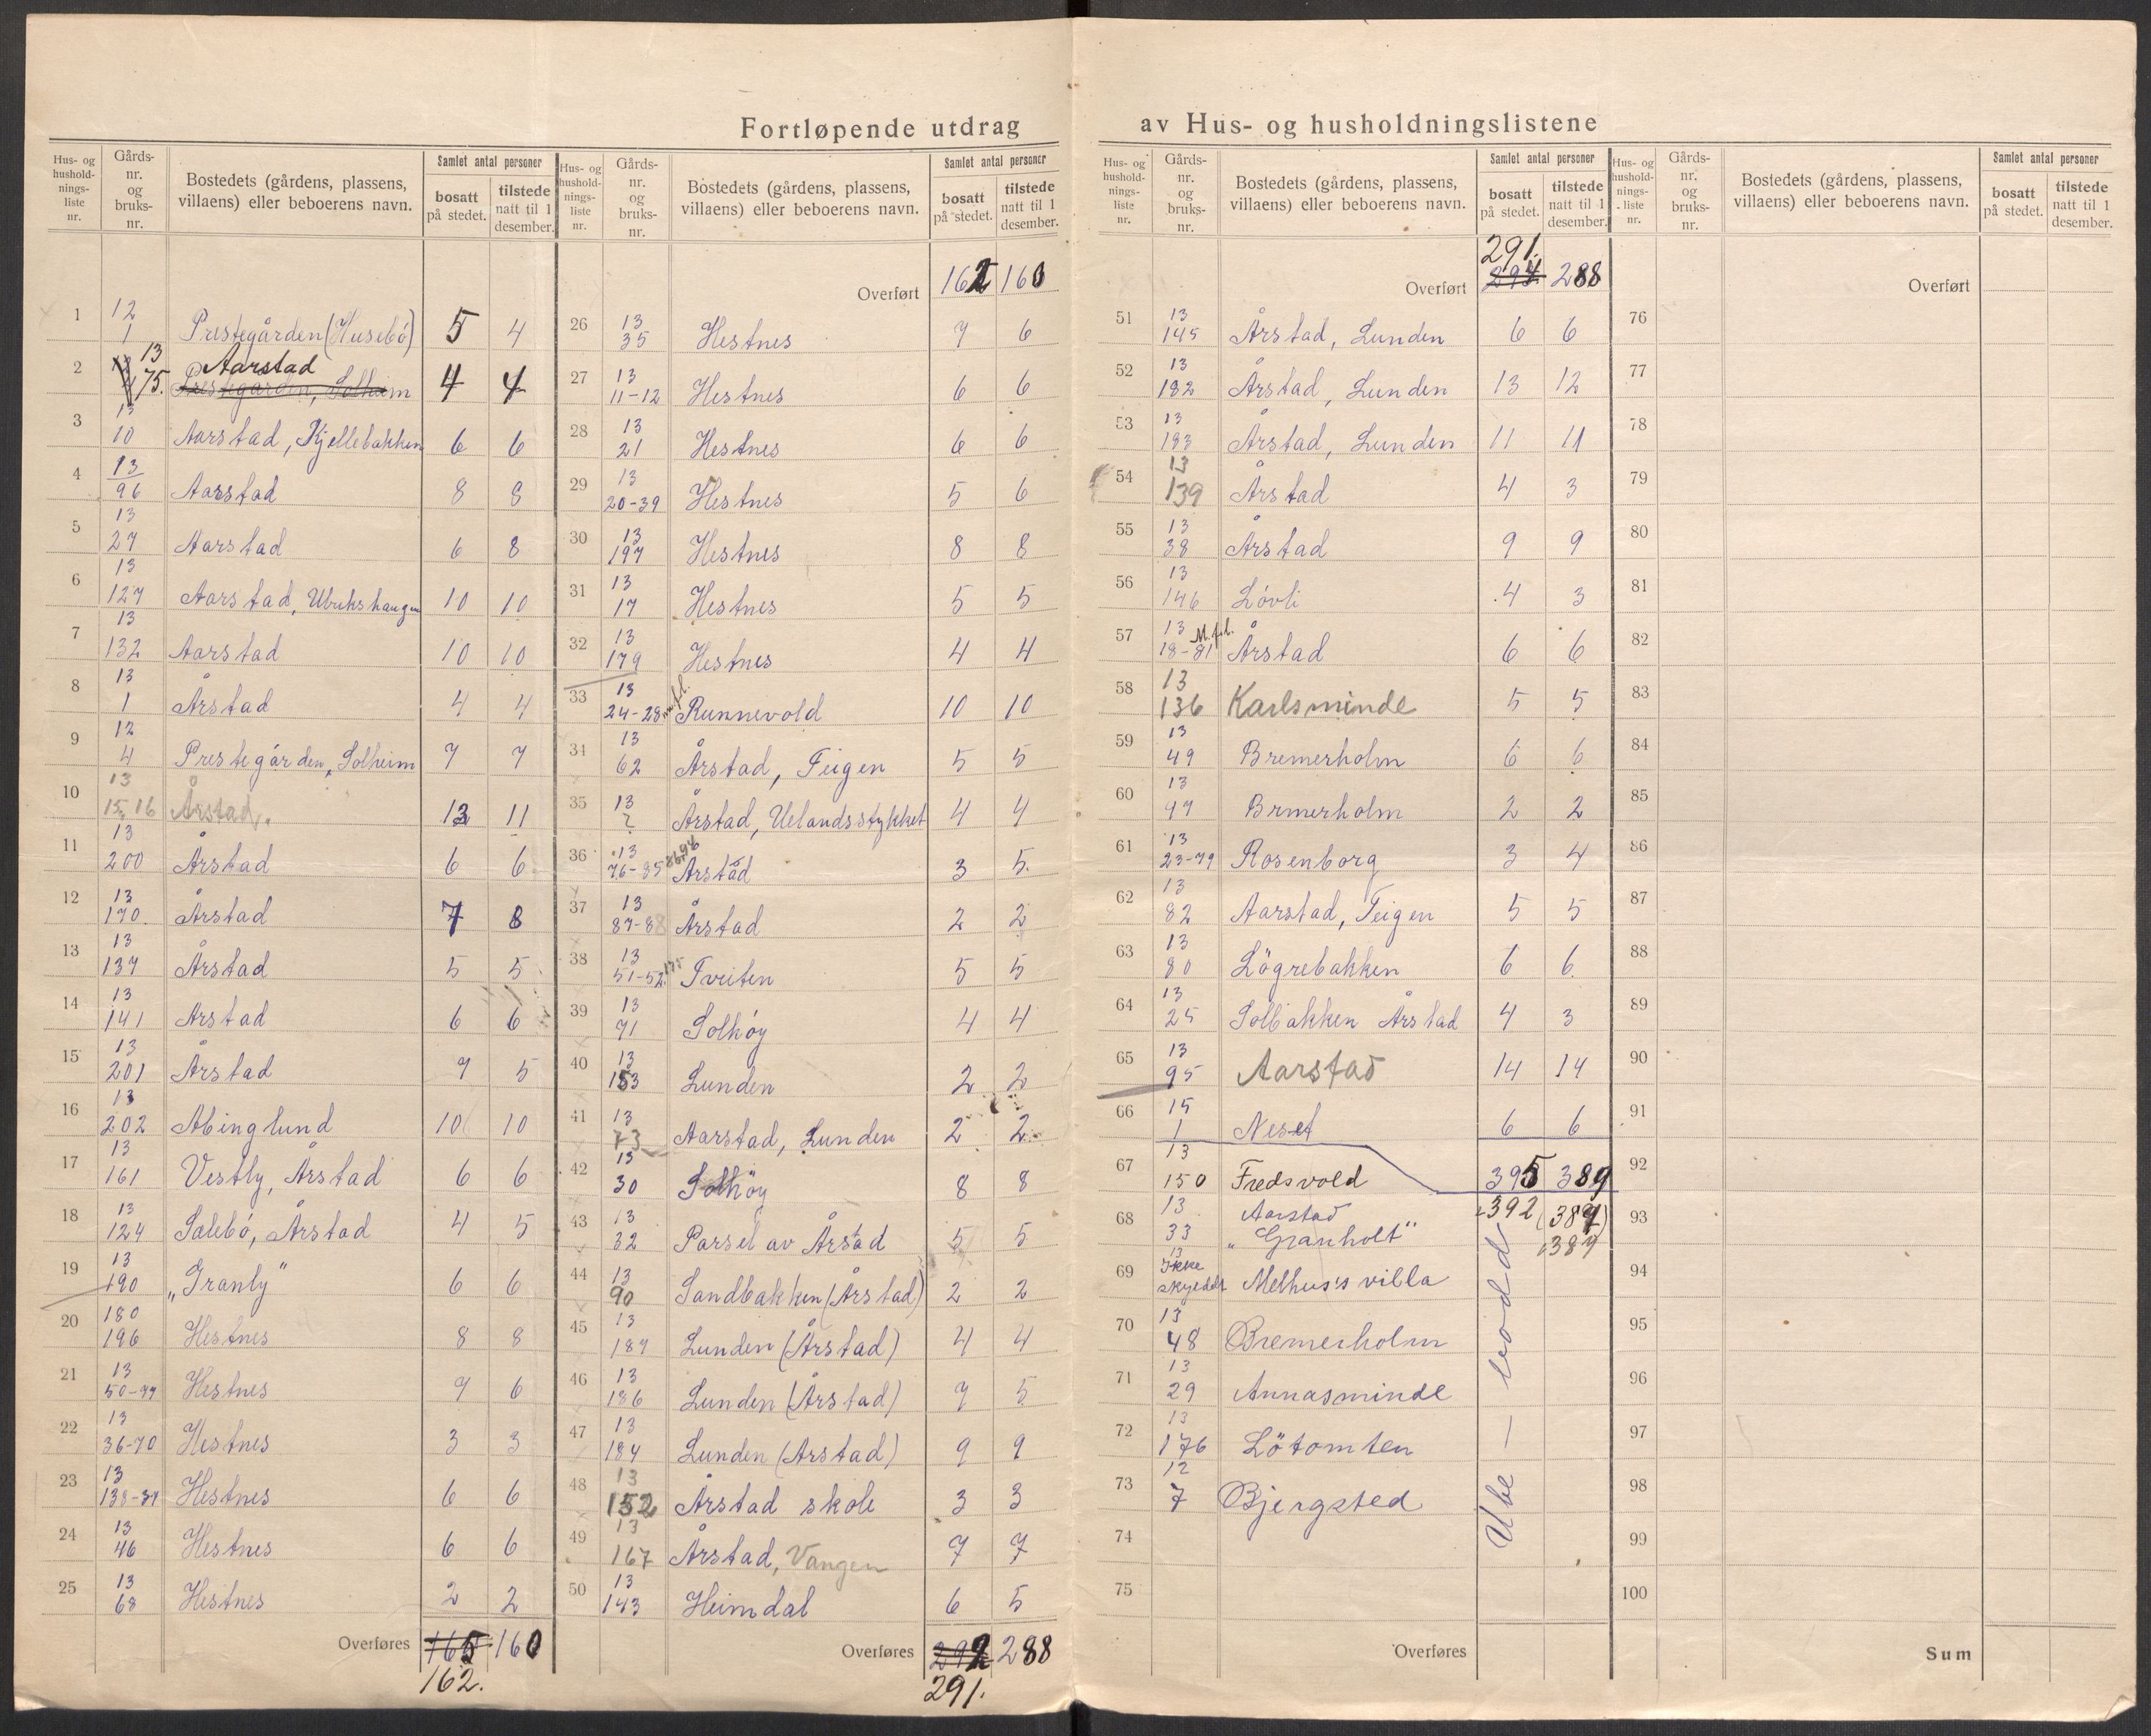 Fortløpende utdrag av Hus- og husholdningslistene
Hus- og husholdningsliste nr. | Gårds-nr. og bruks-nr. | Bostedets (gårdens, plassens, villaens) eller beboerens navn. | Samlet antal personer bosatt på stedet. | tilstede natt til 1 desember.
1 12 1 Prestegården (Husebö) 5 4
2 13 75. Aarstad Prestegården, Solheim 4 4
3 13 10 Aarstad, Kjellebakken 6 6
4 13 96 Aarstad 8 8
5 13 27 Aarstad 6 8
6 13 127 Aarstad, 10 10
7 13 132 Aarstad 10 10
8 13 1 Årstad 4 4
9 12 4 Prestegården, Solheim 7 7
10 13 15, 16 Årstad. 13 11
11 13 200 Årstad 6 6
12 13 170. Årstad 7 8
13 13 137 Årstad 5 5
14 13 141 Årstad 6 6
15 13 201 Årstad 7 5
16 13 202 Abinglund 10 10
17 13 161 Vestly, Årstad 6 6
18 13 124 Salebö, Årstad 4 5
19 13 190 „Granly" 6 6
20 180 196 Hestnes 8 8
21 13 50-77 Hestnes 7 6
22 13 36-70 Hestnes 3 3
23 13 138-37 Hestnes 6 6
24 13 46 Hestnes 6 6
25 13 68 Hestnes 2 2
Overføres 165 160
162.
Hus- og husholdningsliste nr. | Gårds-nr. og bruks-nr. | Bostedets (gårdens, plassens, villaens) eller beboerens navn. | Samlet antal personer bosatt på stedet. | tilstede natt til 1 desember.
Overført 162 160
26 13 35 Hestnes 7 6
27 13 11-12 Hestnes 6 6
28 13 21 Hestnes 6 6
29 13 20-39 Hestnes 5 6
30 13 197 Hestnes 8 8
31 13 17 Hestnes 5 5
32 13 179 Hestnes 4 4
33 13 24-28 m.fl. Runnevold 10 10
34 13 62 Årstad, Teigen 5 5
35 13 ? Årstad, Uelandsstykket 4 4
36 13 76-85 86,94 Årstad 3 5.
37 13 87-88 Årstad 2 2
38 13 51-52. 175 Tveiten 5 5
39 13 71 Solhöy 4 4
40 13 153 Lunden 2 2
41 13 73 Aarstad, Lunden 2 2
42 13 30 Solhöy 8 8
43 13 32 Parsel av Årstad 5 5
44 13 90 Sandbakken (Årstad) 2 2
45 13 187 Lunden (Årstad) 4 4
46 13 186 Lunden (Årstad) 7 5
47 13 184 Lunden (Årstad) 9 9
48 13 152 Årstad skole 3 3
49 13 167 Årstad, Vangen 7 7
50 13 143 Heimdal 6 5
Overføres 292 288
291.
Hus- og husholdningsliste nr. | Gårds-nr. og bruks-nr. | Bostedets (gårdens, plassens, villaens) eller beboerens navn. | Samlet antal personer bosatt på stedet. | tilstede natt til 1 desember.
291.
Overført 294 288
51 13 145 Årstad, Lunden 6 6
52 13 182 Årstad, Lunden 13 12
53 13 183 Årstad, Lunden 11 11
54 13 139 Årstad 4 3
55 13 38 Årstad 9 9
56 13 146 Lövli 4 3
57 13 18-81 M.fl. Årstad 6 6
58 13 136 Karlsminde 5 5
59 13 49 Bremerholm 6 6
60 13 97 Bremerholm 2 2
61 13 23-79 Rosenborg 3 4
62 13 82 Aarstad, Teigen 5 5
63 13 80 Lögrebakken 6 6
64 13 25 Solbakken Årstad 4 3
65 13 95 Aarstad 14 14
66 15 1 Neset 6 6
67 13 150 Fredsvold 395 389
68 13 33 Aarstad „Granholt" 392 (387)
387
69 13 Ikke skyldd Melhus's villa
70 13 48 Bremerholm
71 13 29 Annasminde
72 13 176 Lötomten
73 12 7 Bjergsted
Ube — bodd
74
75
Overføres
Hus- og husholdningsliste nr. | Gårds-nr. og bruks-nr. | Bostedets (gårdens, plassens, villaens) eller beboerens navn. | Samlet antal personer bosatt på stedet. | tilstede natt til 1 desember.
Overført
76
77
78
79
80
81
82
83
84
85
86
87
88
89
90
91
92
93
94
95
96
97
98
99
100
Sum